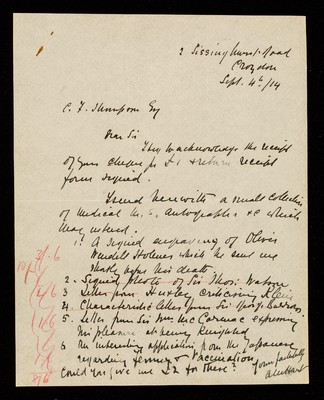 2 Sissinghurst Road
Croydon
Sept. 4th/14
C. J. Thompson Esq
Dear Sir
I beg to acknowledge the receipt
of your cheque for £1 & return receipt
form signed.
I send herewith a small collection
of medical M.S. autographs &c which
may interest.
1. A signed engraving of Oliver
Wendell Holmes which he sent me
shortly before his death.
2. Signed Photo of Sir Thos. Watson
3 Letter from Huxley criticising
4. Characteristic letter from Sir George
5. Letter from Sir Wm. Mac Cormac expressing
his pleasure at being Knighted
6 An interesting application from the Japanese
regarding Jenner & Vaccination
Could you give me £2 for these?
Yours faithfully
2/6
10/
2/6
1/6